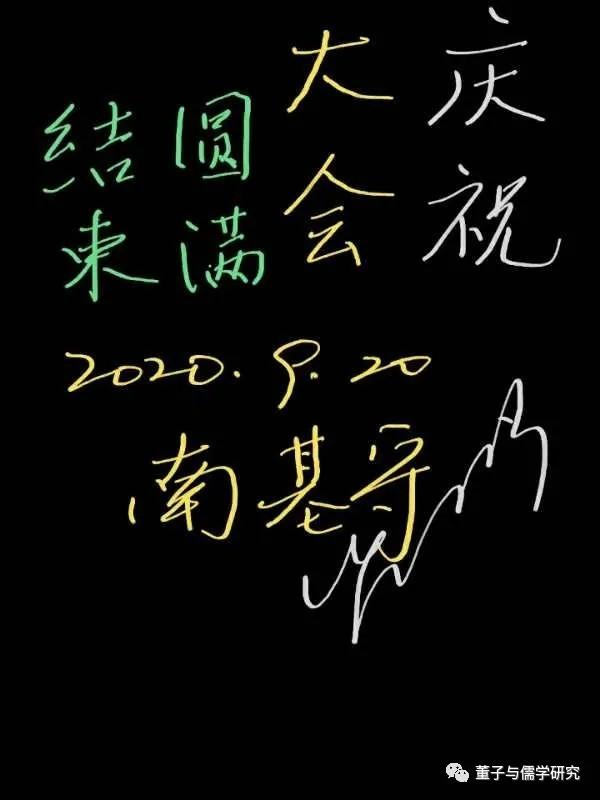 庆祝
大会
圆满
結束
2020.9.20
南基守
董子与儒学研究